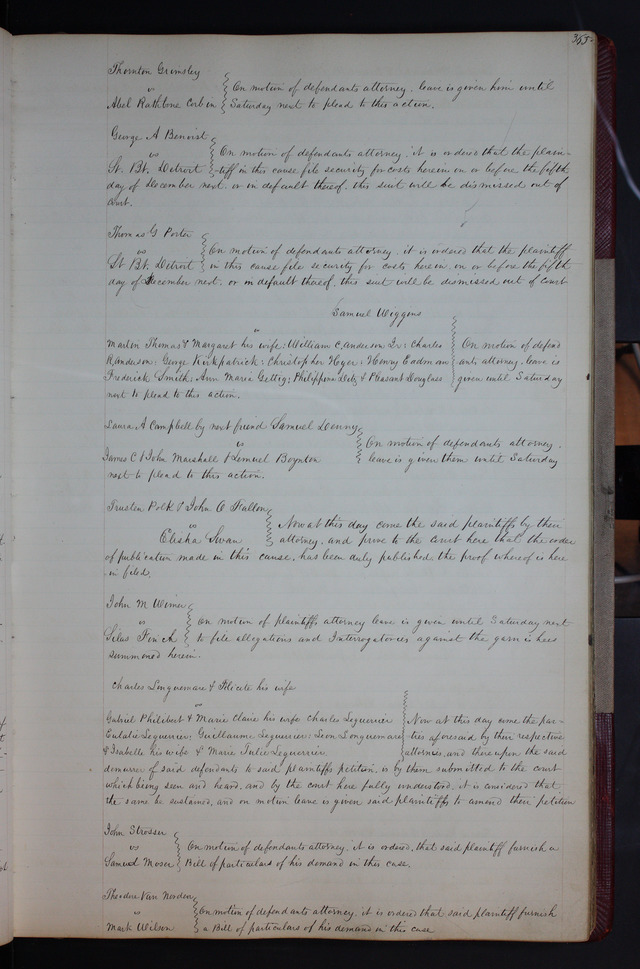 365.
Thornton Grimsley
vs
Abel Rathbone Corbin
On motion of defendants attorney, leave is given him until
Saturday next to plead to this action.
George A Benoist
vs
St. Bt. Detroit
On motion of defendants attorney, it is ordered that the plain-
tiff in this cause file security for costs herein on or before the fifth
day of December next, or in default thereof, this suit will be dismissed out of
Court.
Thomas G Porter
vs
St Bt. Detroit
On motion of defendants attorney, it is ordered that the plaintiff
in this cause file security for costs herein, on or before the fifth
day of December next, or in default thereof, this suit will be dismissed out of Court
Samuel Wiggins
vs
Marton Thomas & Margaret his wife; William C. Anderson Jr; Charles
R Anderson; George Kirkpatrick; Christopher Hyer; Henry Eadman
Frederick Smith; Ann Maria Gettig; Philippina Detz & Pleasant Douglass
On motion of defend
ants attorney, leave is
given until Saturday
next to plead to this action.
Laura A Campbell by next friend Samuel Denny
vs
James C & John Marshall & Lemuel Boynton
On motion of defendants attorney,
leave is given them until Saturday
next to plead to this action.
Trusten Polk & John C Fallon
vs
Elisha Swan
Now at this day come the said plaintiffs by their
attorney, and prove to the Court here that the order
of publication made in this cause, has been duly published, the proof whereof is here
in filed.
John M Wimer
vs
Silas Finch
On motion of plaintiffs attorney leave is given until Saturday next
to file allegations and Interrogatories against the garnishees
summoned herein.
Charles Longuemare & Felicite his wife
vs
Gabriel Philibert & Marie Claire his wife Charles Leguerrier
Eulalie Leguerrier; Guillaume Leguerrier; Leon Longuemare
& Isabelle his wife & Marie Julie Leguerrier
Now at this day come the par-
ties aforesaid by their respective
attornies, and thereupon the said
demurrer of said defendants to said plaintiffs petition, is by them submitted to the court
which being seen and heard, and by the court here fully understood, it is considered that
the same be sustained, and on motion leave is given said plaintiffs to amend their petition
John Strosser
vs
Samuel Moser
On motion of defendants attorney, it is ordered, that said plaintiff furnish a
Bill of particulars of his demand in this case.
Theodore Van Norden
vs
Mark Wilson
On motion of defendants attorney, it is ordered that said plaintiff furnish
a Bill of particulars of his demand in this case